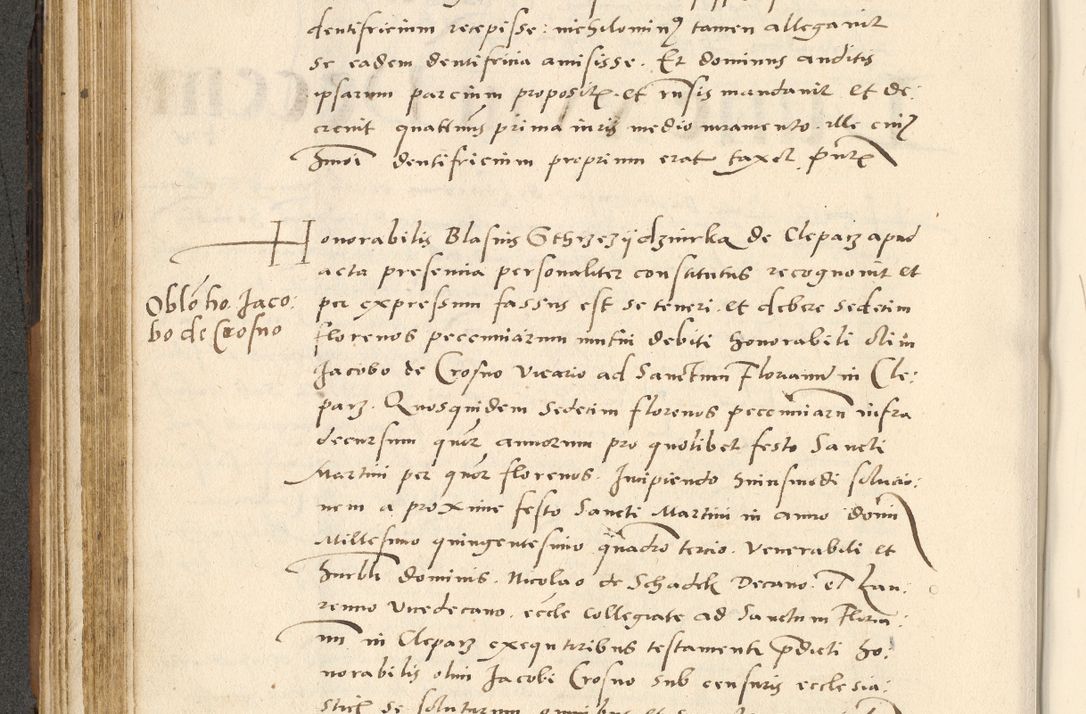 dentifricium recepisse: nichilominꝰ tamen allegavit
se eadem dentifricia amisisse. Et dominus auditis
ipsarum parcium propositꝭ et rn̄sis mandavit et de:
crevit quattenus prima iuris medio iuramento. ille cuiꝰ
hmōi dentifricium proprium erat taxet. pn̄tꝭ
Honorabilis Blasius Sthrzezijdzurka de Cleparz apud
acta presencia personaliter constitutus recognovit et
per expressum fassus est se teneri. et debere sedecim
florenos pecuniarum mutui debiti honorabili olim
Jacobo de Crosno vicario ad Sanctum Florianum in Cle:
parz. Quosquidem sedecim florenos pecuniarū infra
decursum quor annorum pro quolibet festo Sancti
Martini per quor florenos. Incipiendo huiusmodi solucio:
nem a proxime festo Sancti Martini in anno domi
Millesimo quingentesimo quadro tercio. venerabili et
hurbli dominis. Nicolao de Schadek Decano. et Lau:
rencio vicedecano. eccle collegiate ad Sanctum Floria:
num in Cleparz exequtoribus testamenti p̄dicti ho:
norabilis olim Jacobi Crosno sub censuris ecclesia:
sticꝭ se soluturum
Oblō ho. Jaco:
bo de Crosno